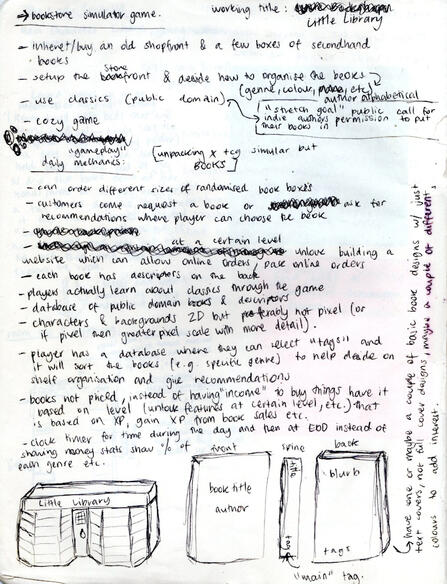 → bookstore simulator game.
working title:
Little Library
- inheret/buy an old shopfront & a few boxes of secondhand
books
- setup the Storefront & decide how to organise the books
(genre, colour, etc)
author alphabetical
- use classics (public domain)
"stretch goal" public call for
indie authors permission to put
their books in
- cozy game
"gameplay"
daily mechanics:
[unpacking x tcg simular but
BOOKS]
- can order different sizes of randomised book boxes
- customers come request a book or ask for
recommendations where player can choose the book
- at a certain level unlove building a
website which can allow online orders, pack online orders
- each book has descriptors on the back
- players actually learn about classics through the game
- database of public domain books & descriptors
- characters & backgrounds 2D but preferbly not pixel (or
if pixel then greater pixel scale with more detail).
- player has a database where they can select "tags" and
it will sort the books (e.g. specific genre) to help decide on
shelf organisation and give recommendations
- books not priced, instead of having "income" to buy things have it
based on level (unlock features at certain level, etc.) that
is based on XP, gain XP from book sales etc.
- clock timer for time during the day and then at EOD instead of
showing money stats show % of
each genre etc.
front
spine
back
Little Library
book title
author
title
tag
blurb
tags
"main" tag.
→ have one or maybe a couple of basic book designs w/ just
text covers, not full cover designs, maybe a couple of different
colours to add interest.